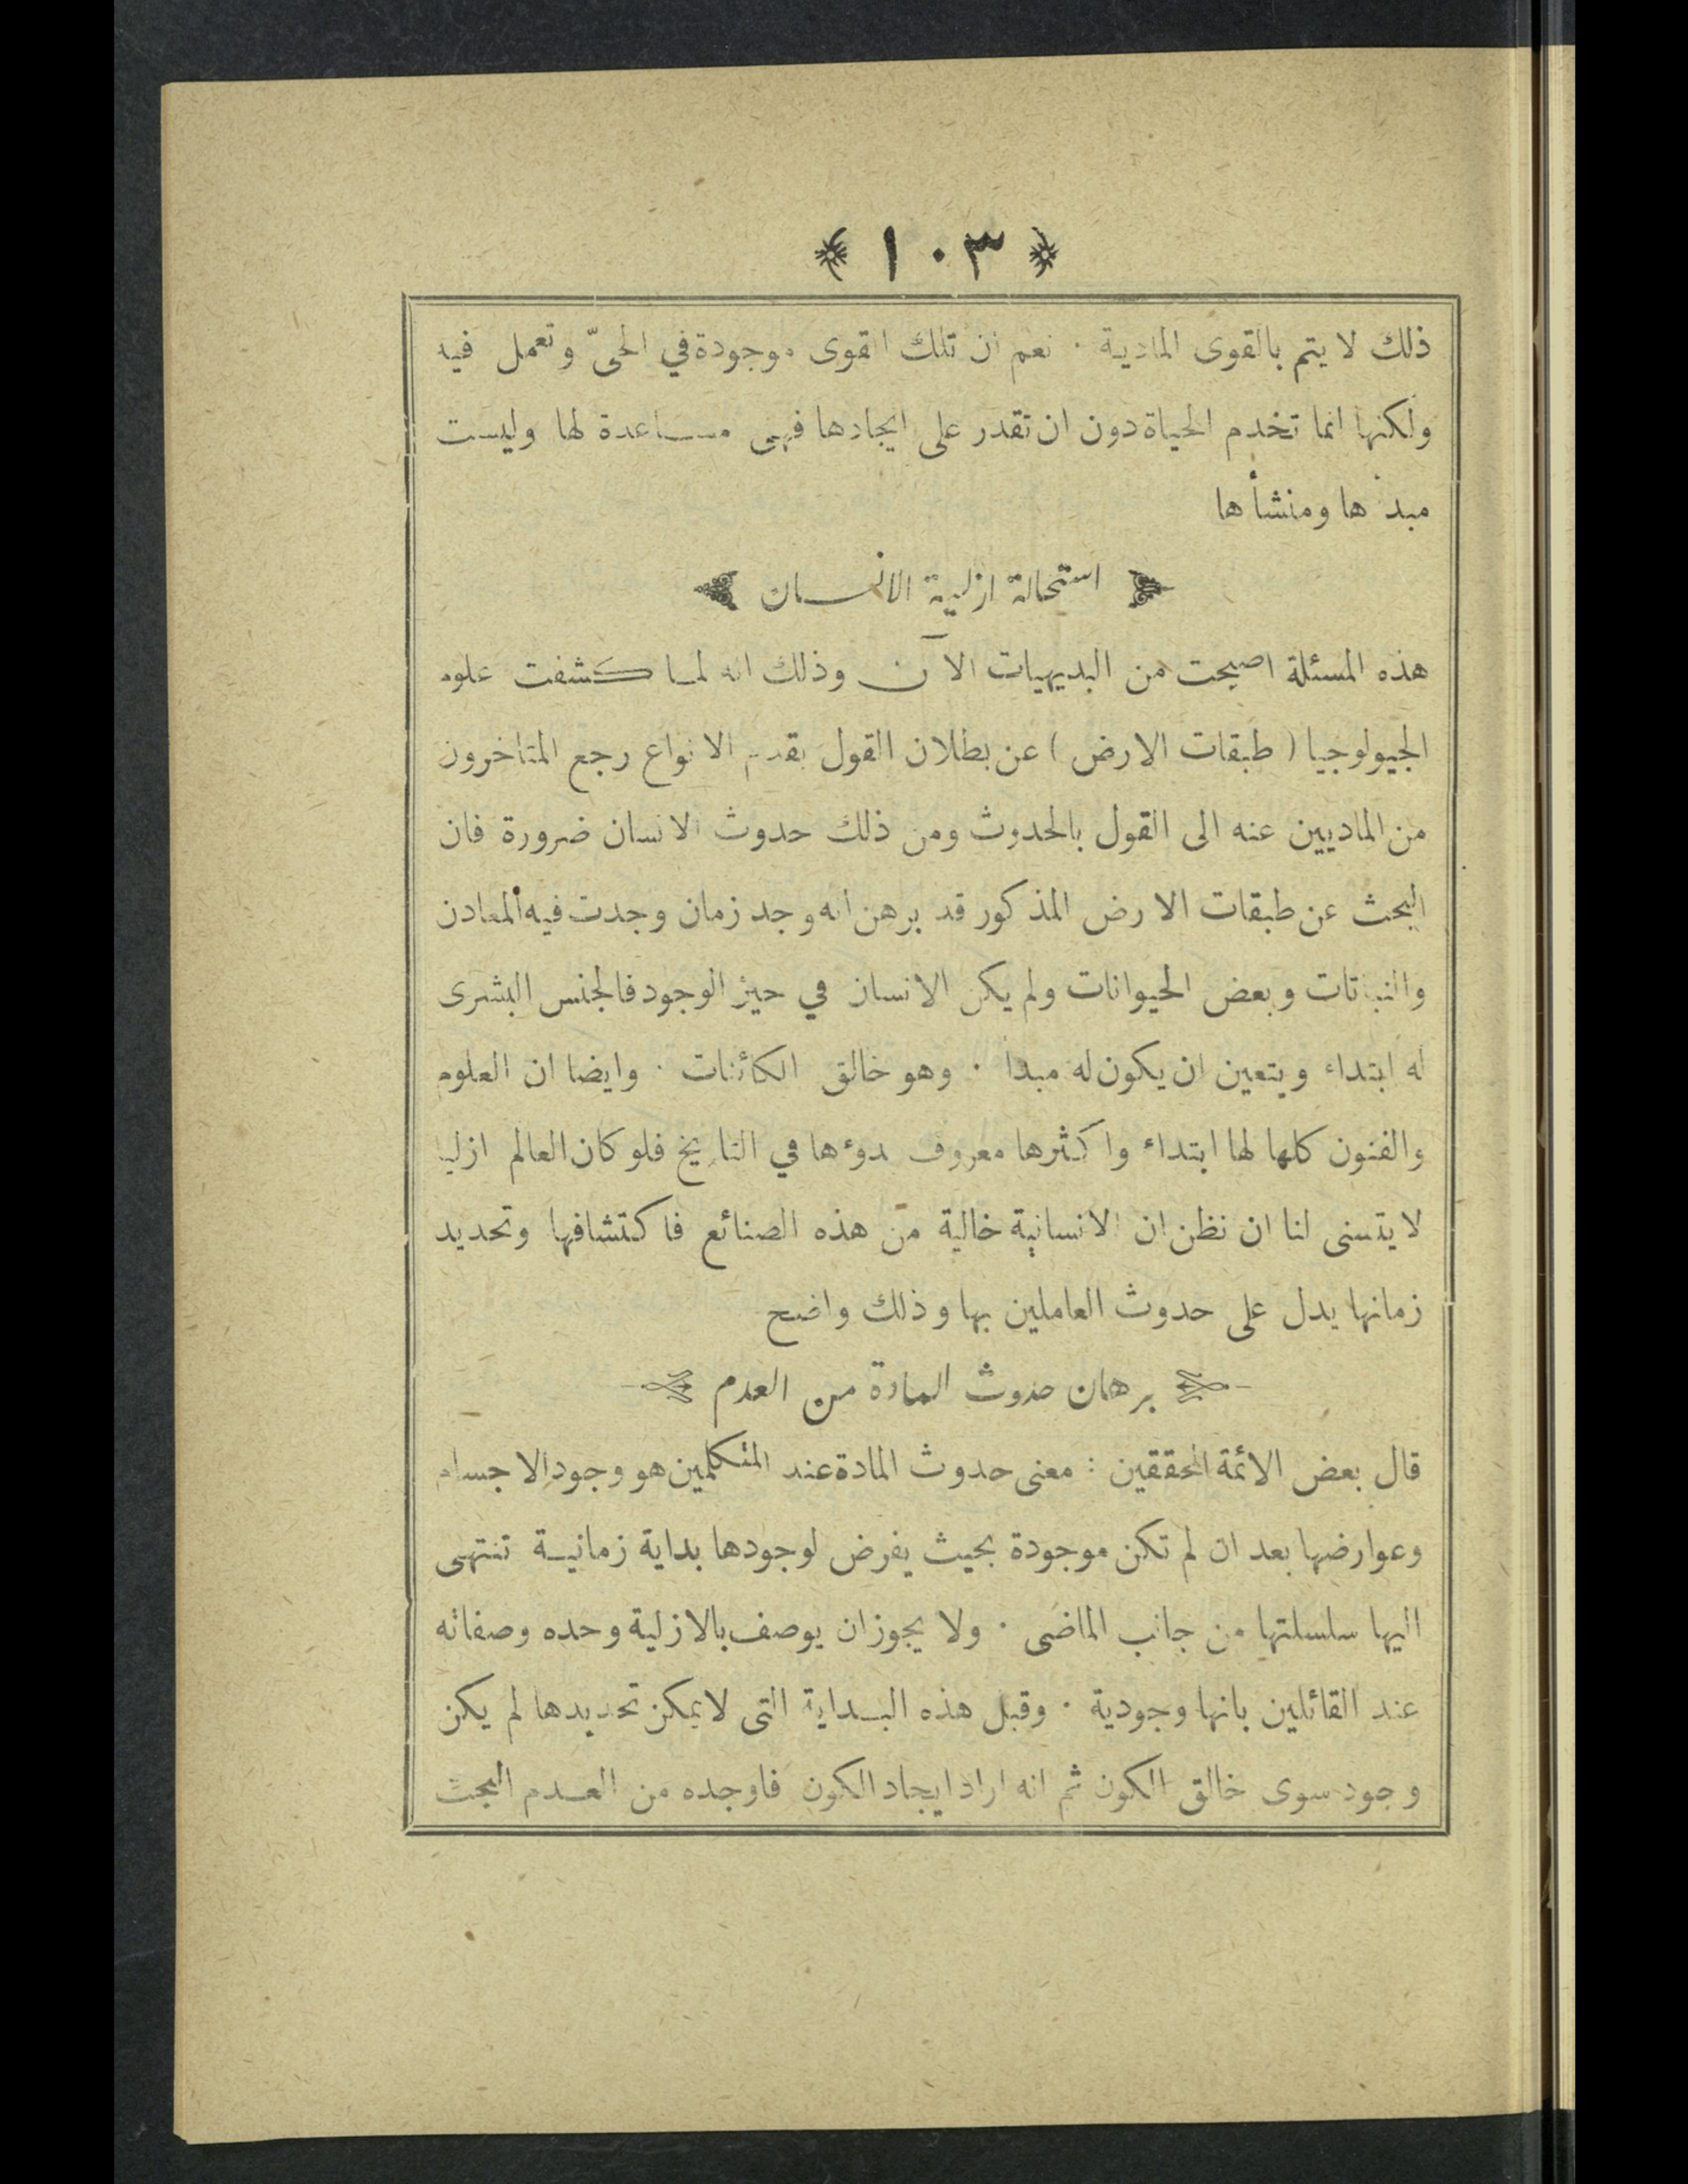 ﴿ ١٠٣ ﴾
ذلك لا يتم بالقوى المادية ٠ نعم ان تلك القوى موجودة في الحىّ وتعمل فيه
ولكنها انما تخدم الحياة دون ان تقدر على ايجادها فهى مساعدة لها وليست
مبدأها ومنشأها
استحالة ازلية الانسان
هذه المسئلة اصبحت من البديهيات الآن وذلك انه لما كشفت علوم
الجيولوجيا ( طبقات الارض ) عن بطلان القول بقدم الانواع رجع المتاخرون
من الماديين عنه الى القول بالحدوث ومن ذلك حدوث الانسان ضرورة فان
البحث عن طبقات الارض المذكور قد برهن انه وجد زمان وجدت فيه المعادن
والنباتات وبعض الحيوانات ولم يكن الانسان في حيز الوجود فالجنس البشرى
له ابتداء ويتعين ان يكون له مبدأ ٠ وهو خالق الكائنات ٠ وايضا ان العلوم
والفنون كلها لها ابتداء واكثرها معروف بدؤها في التاريخ فلو كان العالم ازليا
لا يتسنى لنا ان نظن ان الانسانية خالية من هذه الصنائع فاكتشافها وتحديد
زمانها يدل على حدوث العاملين بها وذلك واضح
برهان حدوث المادة من العدم
قال بعض الائمة المحققين : معنى حدوث المادة عند المتكلمين هو وجود الاجسام
وعوارضها بعد ان لم تكن موجودة بحيث يفرض لوجودها بداية زمانية تنتهى
اليها سلسلتها من جانب الماضى ٠ ولا يجوز ان يوصف بالازلية وحده وصفاته
عند القائلين بانها وجودية ٠ وقبل هذه البداية التى لا يمكن تحديدها لم يكن
وجود سوى خالق الكون ثم انه اراد ايجاد الكون فاوجده من العدم البحت